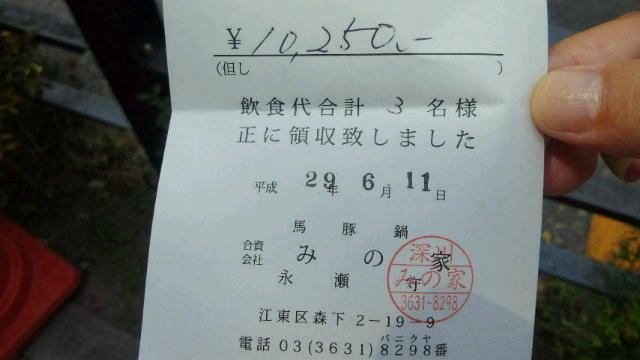 ¥10,250.-
(但し )
飲食代合計 3 名様
正に領収致しました
平成 29年 6月 11日
馬豚鍋
合資会社 みの家
永瀬守
深川
みの家
3631-8298
江東区森下2-19-9
バニクヤ
電話03(3631)8298番